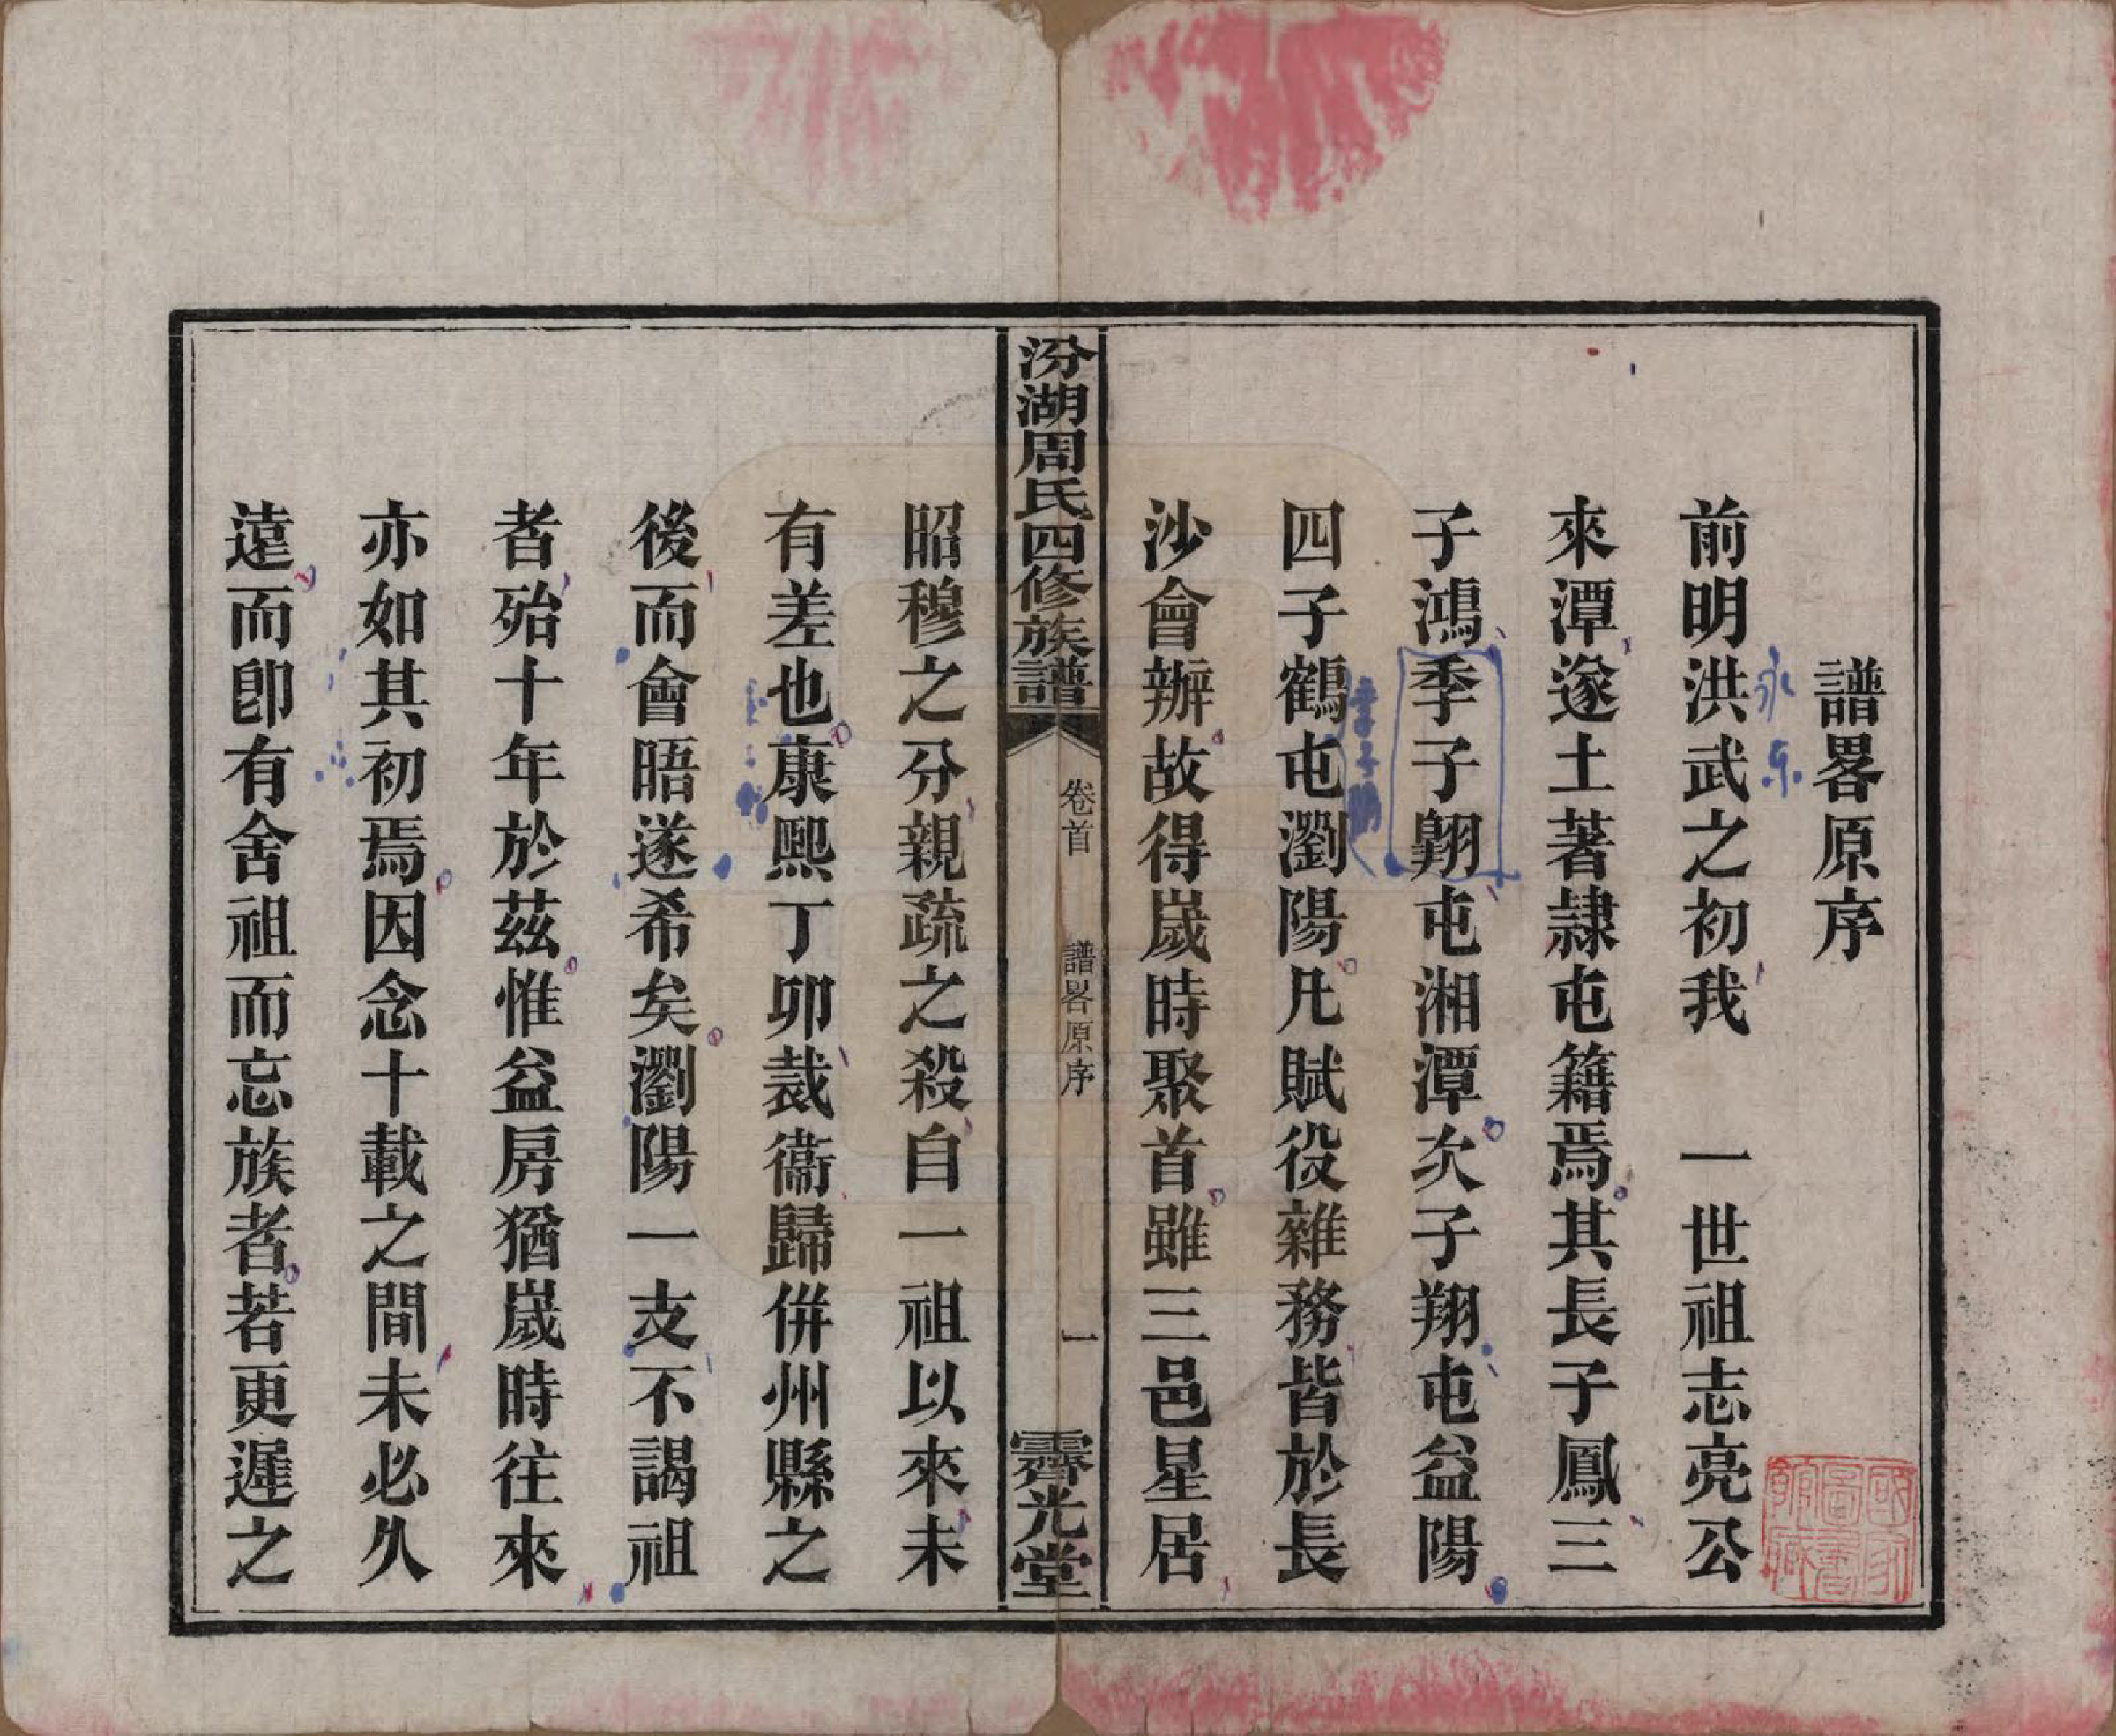 譜畧原序
前明洪武之初我　一世祖志亮公
永乐
來潭遂土著隷屯籍焉其長子鳳三
子鴻季子翺屯湘潭次子翔屯益陽
四子鶴屯瀏陽凡賦役雜務皆於長
沙會辦故得嵗時聚首雖三邑星居
汾湖周氏四修族譜
卷首　譜畧原序　一
霽光堂
昭穆之分親疏之殺自一祖以來未
有差也康熙丁卯裁衞歸併州縣之
後而會晤遂希矣瀏陽一支不謁祖
者殆十年於茲惟益房猶嵗時往來
亦如其初焉因念十載之間未必久
遠而卽有舍祖而忘族者若更遲之
國家圖書館藏